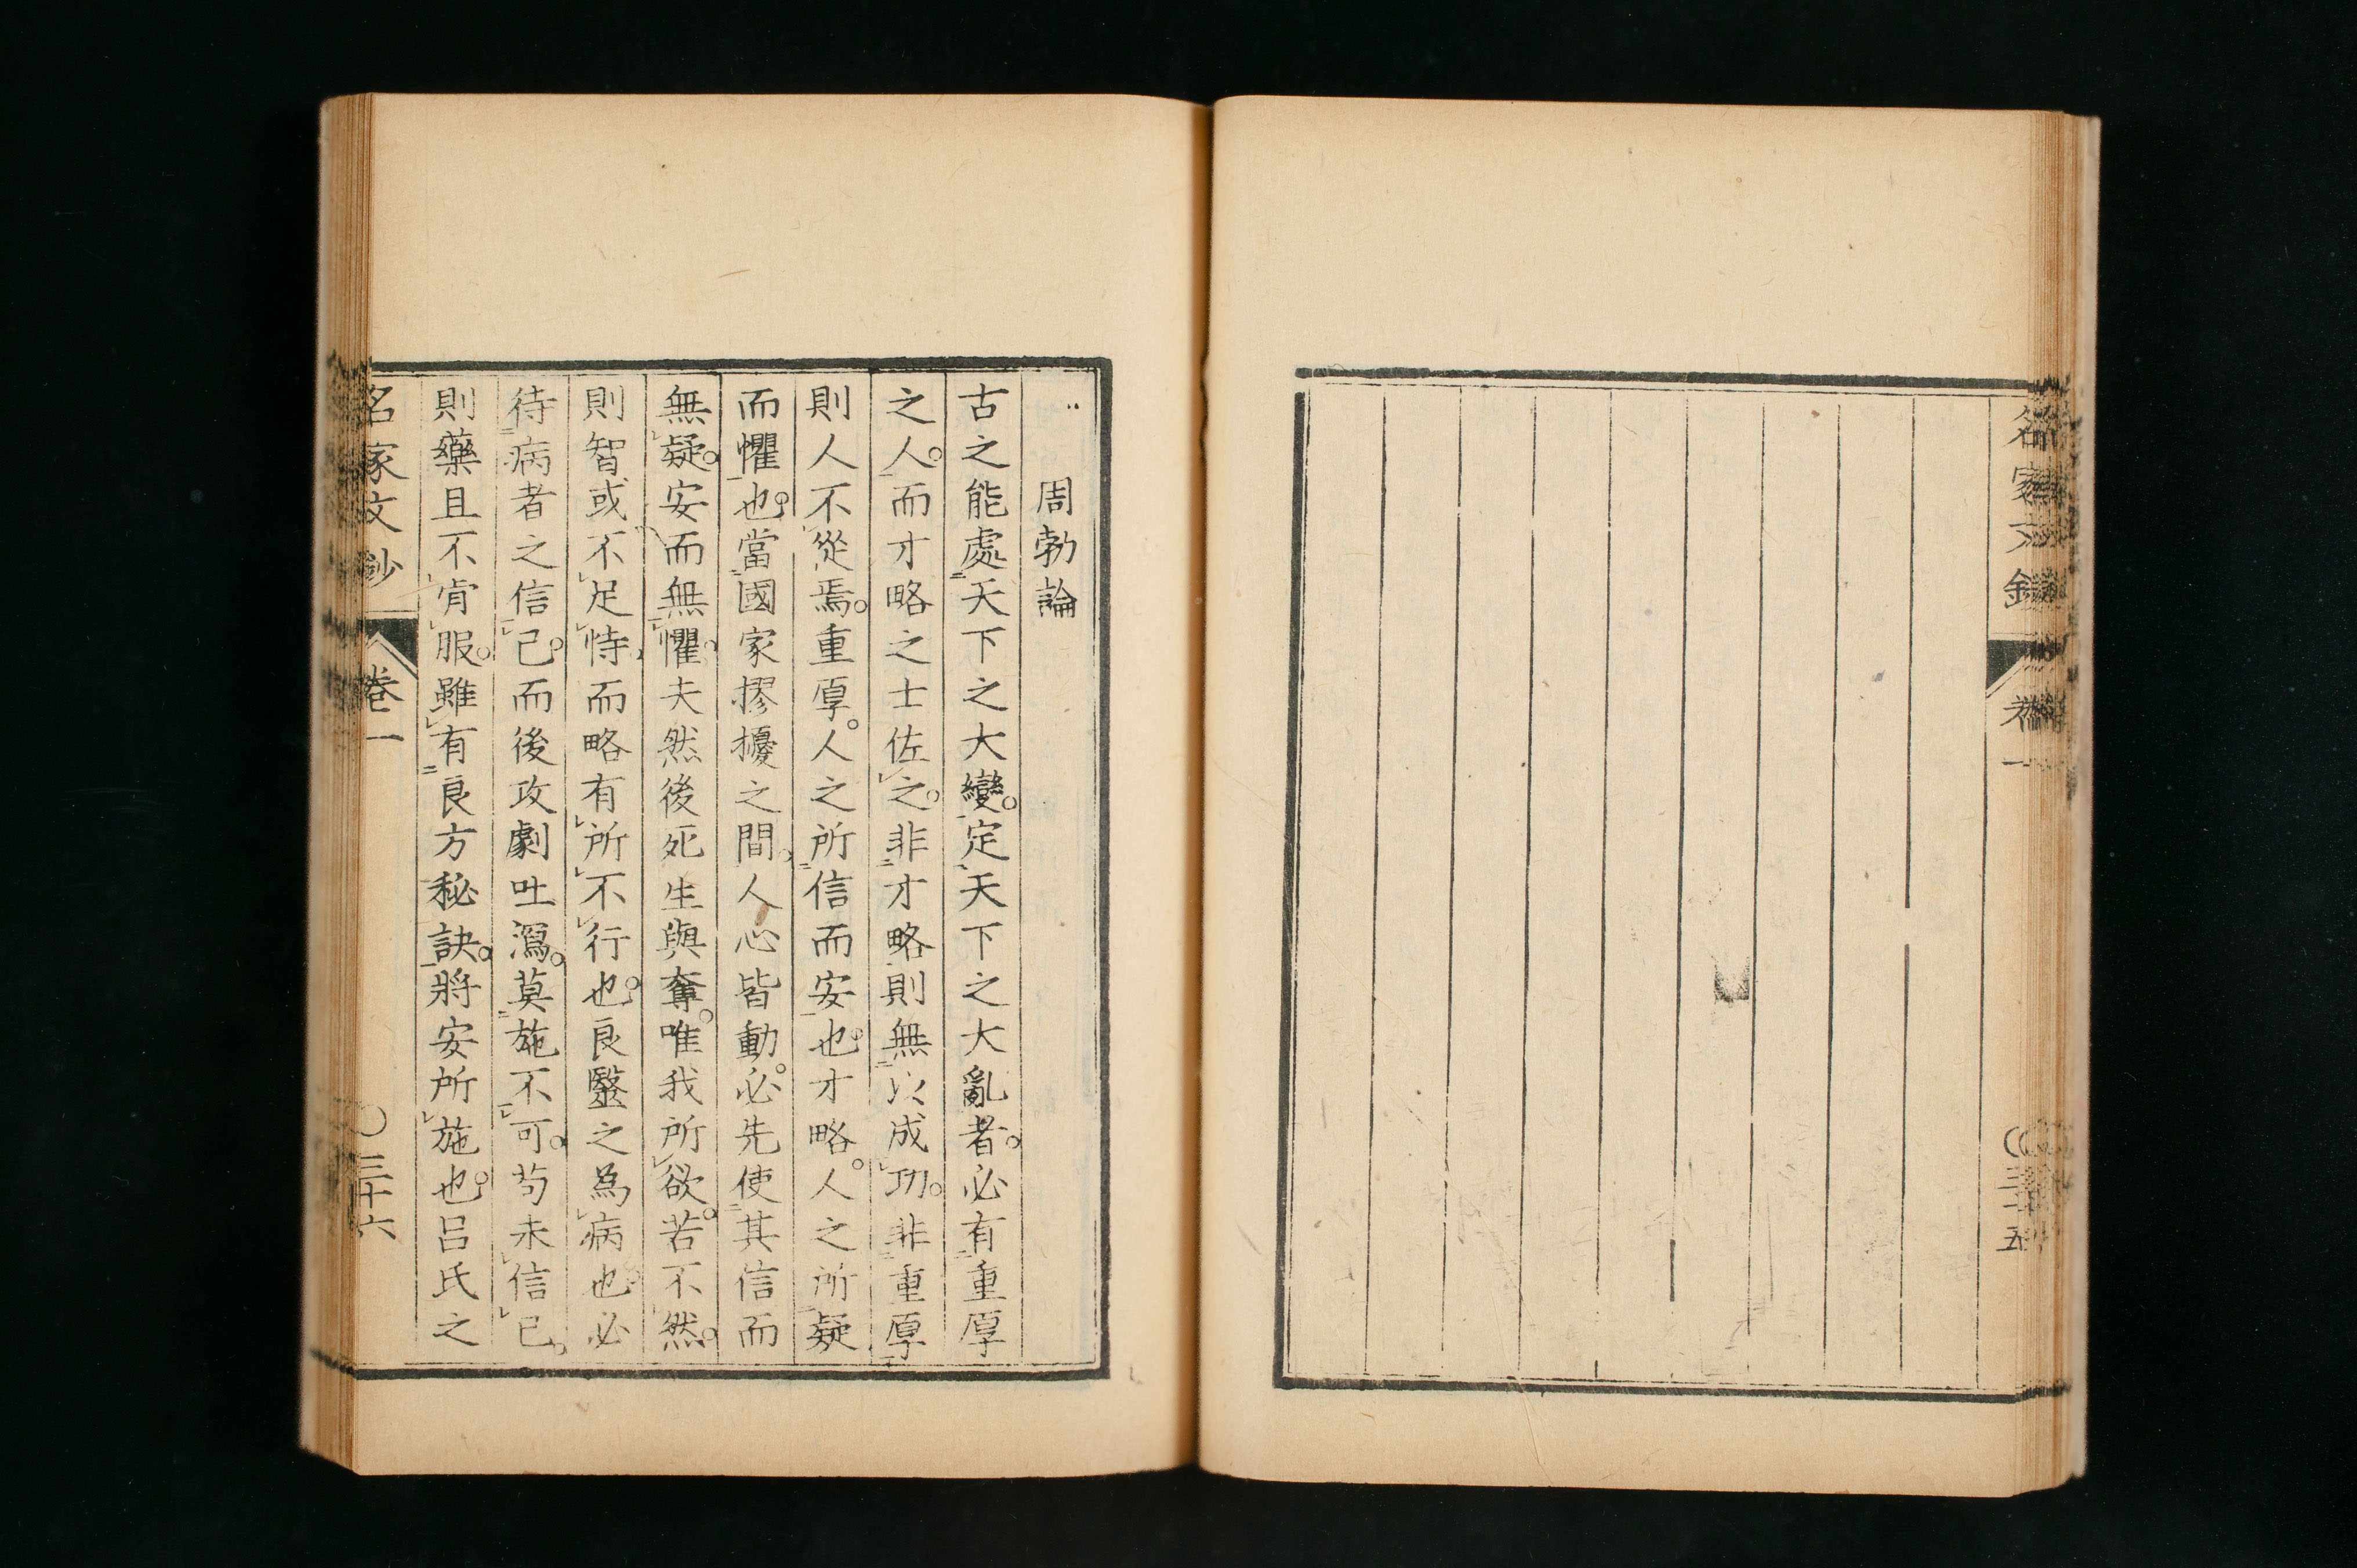 名家文鈔
卷一
三十五
周勃論
古之能處天下之大變。定天下之大亂者。必有重厚
之人。而才略之士佐之。非才略則無以成功。非重厚
則人不從焉。重厚。人之所信而安也。才略。人之所疑
而懼也。當國家摎擾之間。人心皆動。必先使其信而
無疑。安而無懼。夫然後死生與奪。唯我所欲。若不然。
則智或不足恃。而略有所不行也。良毉之為病也。必
待病者之信己。而後攻劇吐瀉。莫施不可。苟未信己。
則藥且不肯服。雖有良方秘訣。將安所施也。呂氏之
名家文鈔
卷一
〇三十六